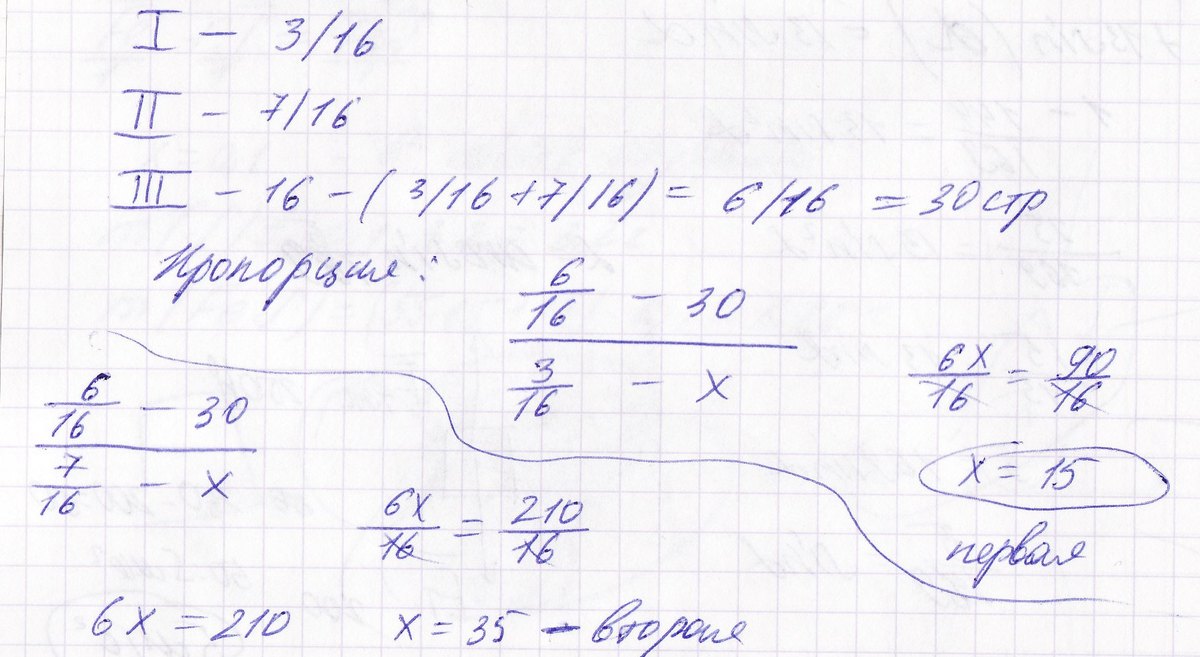 I - 3/16
II - 7/16
III - 16 - (3/16+7/16) = 6/16 = 30 стр
Пропорция:
6/16 - 30
3/16 - x
6x/16 = 90/16
x = 15
первая
6/16 - 30
7/16 - x
6x/16 = 210/16
6x = 210 x = 35 - вторая